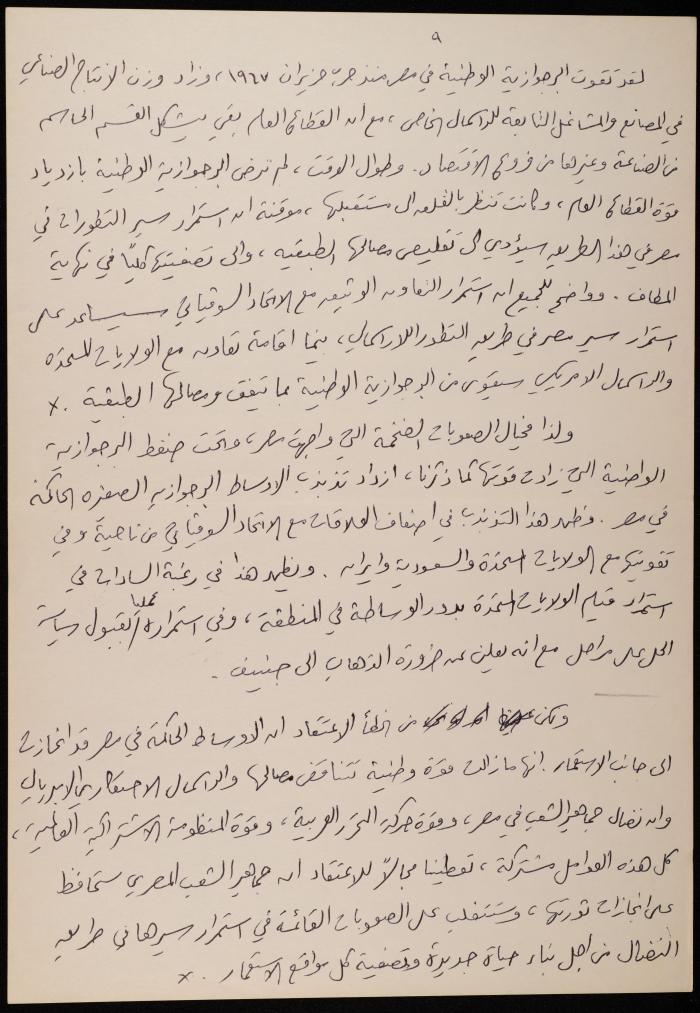 ٩
لقد تقوت البرجوازية الوطنية في مصر منذ حرب حزيران ١٩٦٧، وزاد وزن الانتاج الصناعي
في المصانع والمشاغل التابعة للرأسمال الخاص، مع ان القطاع العام بقي يشكل القسم الحاسم
من الصناعة وغيرها من فروع الاقتصاد. وطوال الوقت، لم ترض البرجوازية الوطنية بازدياد
قوة القطاع العام، وكانت تنظر بالقلق الى مستقبلها، موقنة ان استمرار سير التطورات في
مصر في هذا الطريق سيؤدي الى تقليص مصالحها الطبقيه، والى تصفيتها كليًا في نهاية
المطاف. وواضح للجميع ان استمرار التعاون الوثيق مع الاتحاد السوفياتي سيساعد على
استمرار سير مصر في طريق التطور اللارأسمالي، بينما اقامة تعاون مع الولايات المتحده
والرأسمال الامريكي سيقوي من البرجوازية الوطنية بما يتفق ومصالحها الطبقية. x
ولذا فحيال الصعوبات الضخمة التي واجهت مصر، وتحت ضغط البرجوازية
الوطنية التي زادت قوتها كما ذكرنا، ازداد تذبذب الاوساط البرجوازيه الصغيره الحاكمة
في مصر. وظهر هذا التذبذب في اضعاف العلاقات مع الاتحاد السوفياتي من ناحية وفي
تقويتها مع الولايات المتحدة والسعودية وايران. ويظهر هذا في رغبة السادات في
استمرار قيام الولايات المتحدة بدور الوساطة في المنطقة، وفي استمراره عمليا بقبول سياسة
الحل على مراحل مع انه يعلن عن ضرورة الذهاب الى جنيف.
ولكن من الخطأ الاعتقاد ان الاوساط الحاكمة في مصر قد انحازت
الى جانب الاستعمار. انها ما زالت قوة وطنية تتناقض مصالحها والرأسمال الاحتكاري الامبريالي
وان نضال جماهير الشعب في مصر، وقوة حركة التحرر العربية، وقوة المنظومة الاشتراكية العالمية،
كل هذه العوامل مشتركة، تعطينا مجالاً للاعتقاد ان جماهير الشعب المصري ستحافظ
على انجازات ثورتها، وستتغلب على الصعوبات القائمة في استمرار سيرها في طريق
النضال من اجل بناء حياة جديدة وتصفية كل مواقع الاستعمار. x